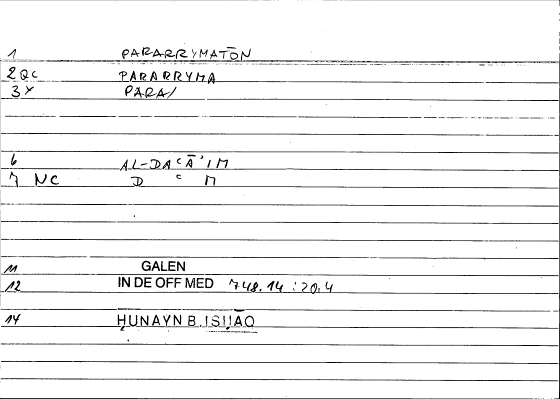 1 PARARRYMATŌN
2QC PARARRYMA
3Y PARA/
6 AL-DAʿĀʾIM
7 NC D ʿ M
11 GALEN
12 IN DE OFF MED 748.14 : 20.4
14 ḤUNAYN B. ISḤĀQ